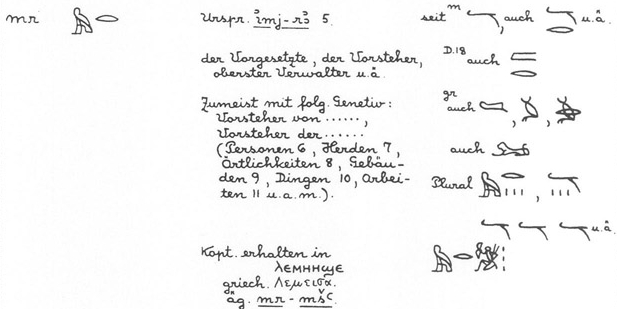 mr 𓅓𓂋 Urspr. ỉmj-rꜣ 5. seit m 𓄓, auch 𓄓𓂋 u.ä.
der Vorgesetzte, der Vorsteher, D.18 auch
oberster Verwalter u.ä.
Zumeist mit folg. Genetiv: gr auch
Vorsteher von ......,
Vorsteher der ......
(Personen 6, Herden 7, auch
Örtlichkeiten 8, Gebäu-
den 9, Dingen 10, Arbei- Plural
ten 11 u.a.m.).
u.ä.
Kopt. erhalten in
ⲗⲉⲙⲏⲏϣⲉ
griech. Λεμεισα.
äg. mr - mšꜥ